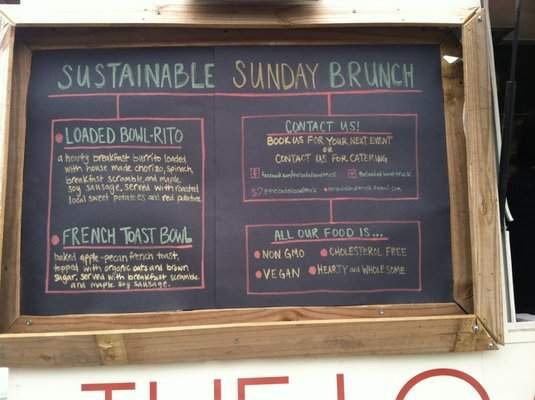 SUSTAINABLE SUNDAY BRUNCH
LOADED BOWL-RITO
a hearty breakfast burrito loaded
with house made chorizo, spinach,
breakfast scramble, and maple
soy sausage, served with roasted
local sweet potatoes and red potatoes.
FRENCH TOAST BOWL
baked apple-pecan french toast,
topped with organic oats and brown
sugar, served with breakfast scramble
and maple soy sausage.
CONTACT US!
BOOK US FOR YOUR NEXT EVENT
OR
CONTACT US FOR CATERING
ALL OUR FOOD IS...
NON GMO
CHOLESTEROL FREE
VEGAN
HEARTY and WHOLESOME
THE LO